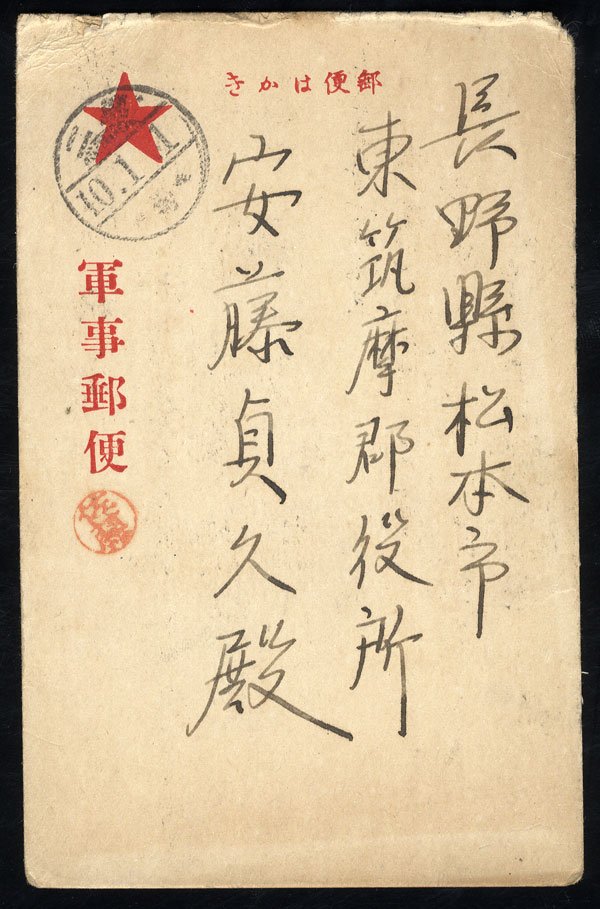 郵便はかき
長野縣松本市
東筑摩郡役所
安藤貞久殿
軍事郵便
10.1.1